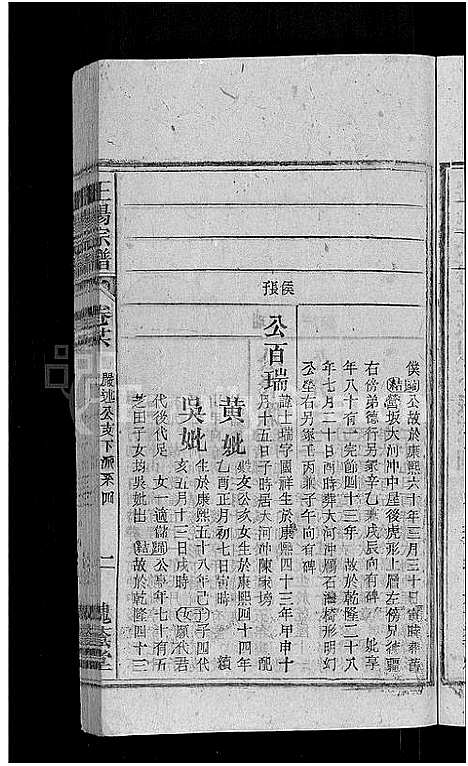 侯公故於康熙六十年三月三十日寅時葬
營坂大河冲中屋後虎形上層左傍兄德
右傍弟德行另冢辛乙兼戌辰向有碑 妣享
年八十有一完節四十三年 故於乾隆二十八
年七月二十日酉時葬大河冲廟石灣椅形明幻
公塋右另冢壬丙兼子午向有碑
侯張
公百瑞
諱士瑞字國祥生於康熙四十三年甲申十
月十五日子時居大河冲陳家塝 配
黃妣
文公亥女生於康熙四十四年
乙酉正月初七日寅時 續
吳妣
生於康熙五十八年己亥字四代
亥五月十三日戌時 女顯代君
代後代足 女一適儲 公壽年七十有五
芝田子女均吳妣出 故於乾隆四十三
王楊宗譜
卷
嚴述公支下派系四
二
槐蔭堂